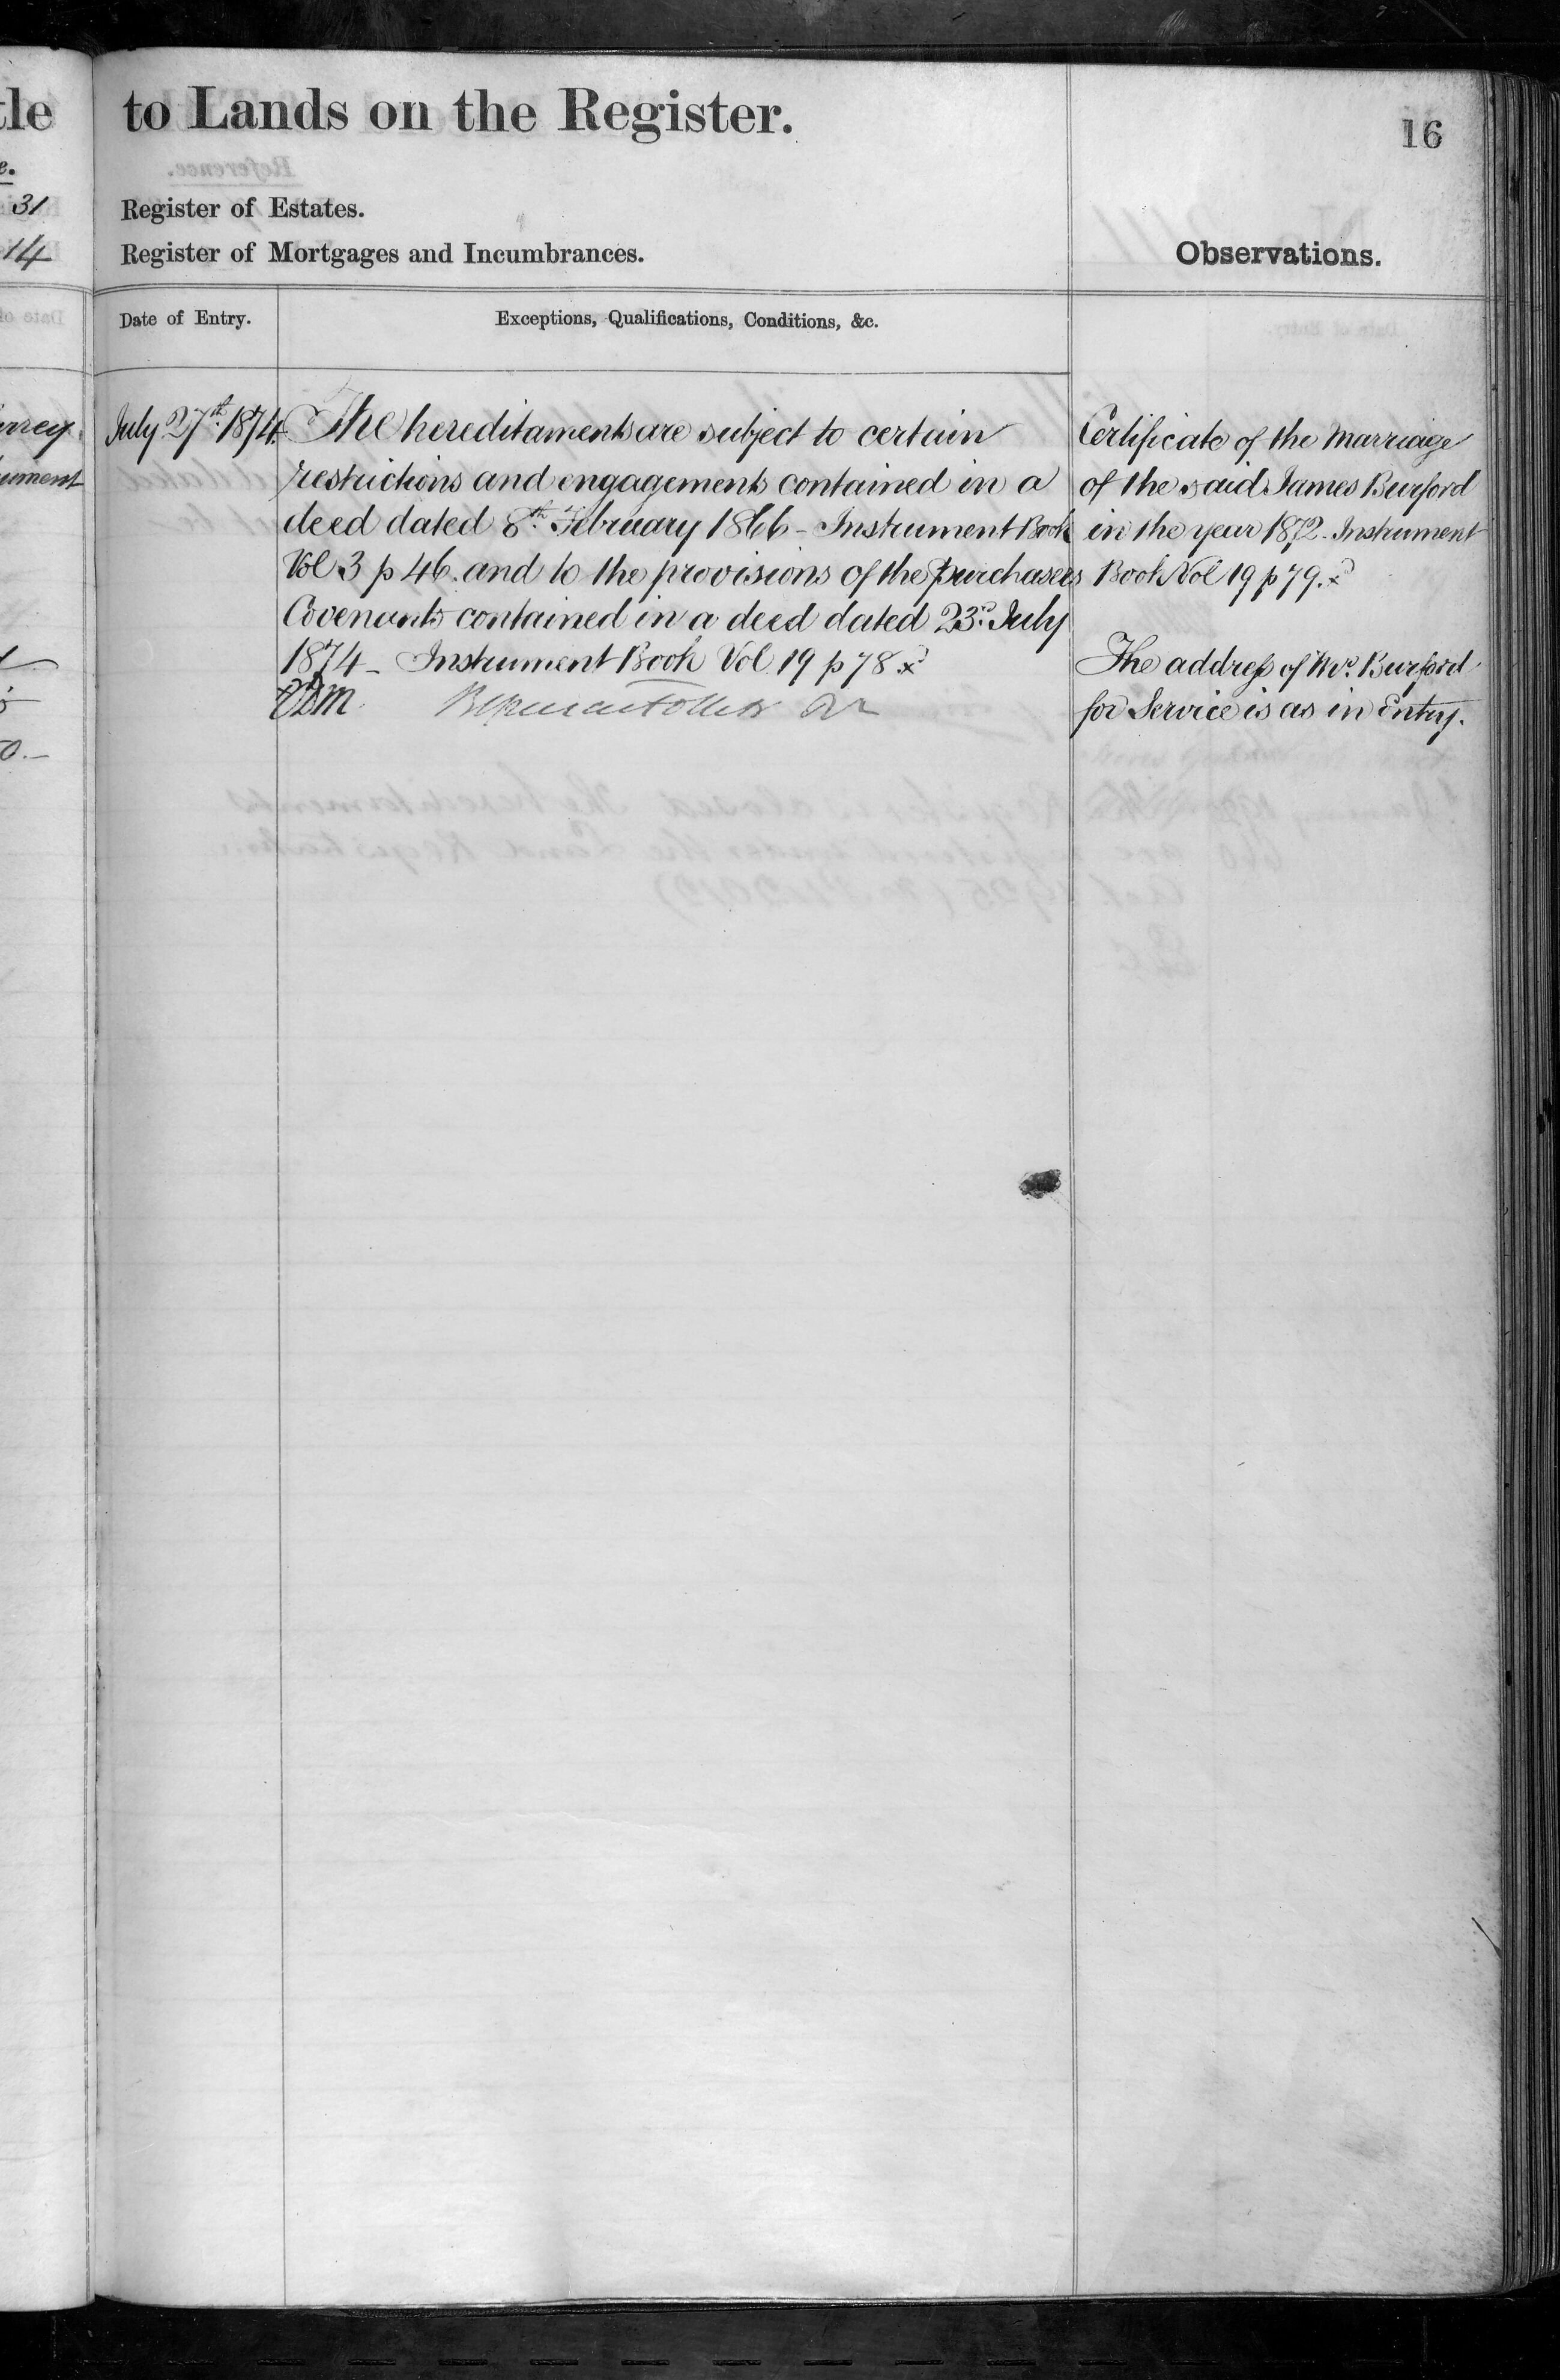 tle
to Lands on the Register.
16
e.
31
Register of Estates.
14
Register of Mortgages and Incumbrances.
Observations.
Date of Entry.
Exceptions, Qualifications, Conditions, &c.
July 27th. 1874.
The hereditaments are subject to certain
restrictions and engagements contained in a
deed dated 8th. February 1866 - Instrument Book
Vol 3 p 46. and to the provisions of the purchasers
Covenants contained in a deed dated 23rd. July
1874 - Instrument Book Vol 19 p 78 x
Certificate of the Marriage
of the said James Burford
in the year 1872. Instrument
Book Vol 19 p 79. x
The address of Mr. Burford
for Service is as in Entry.